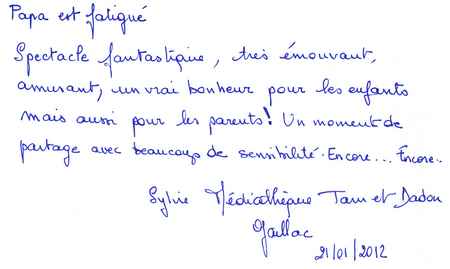 Papa est fatigué
Spectacle fantastique, très émouvant,
amusant, un vrai bonheur pour les enfants
mais aussi pour les parents! Un moment de
partage avec beaucoup de sensibilité. Encore... Encore..
Sylvie Médiathèque Tarn et Dadou
Gaillac
21/01/2012